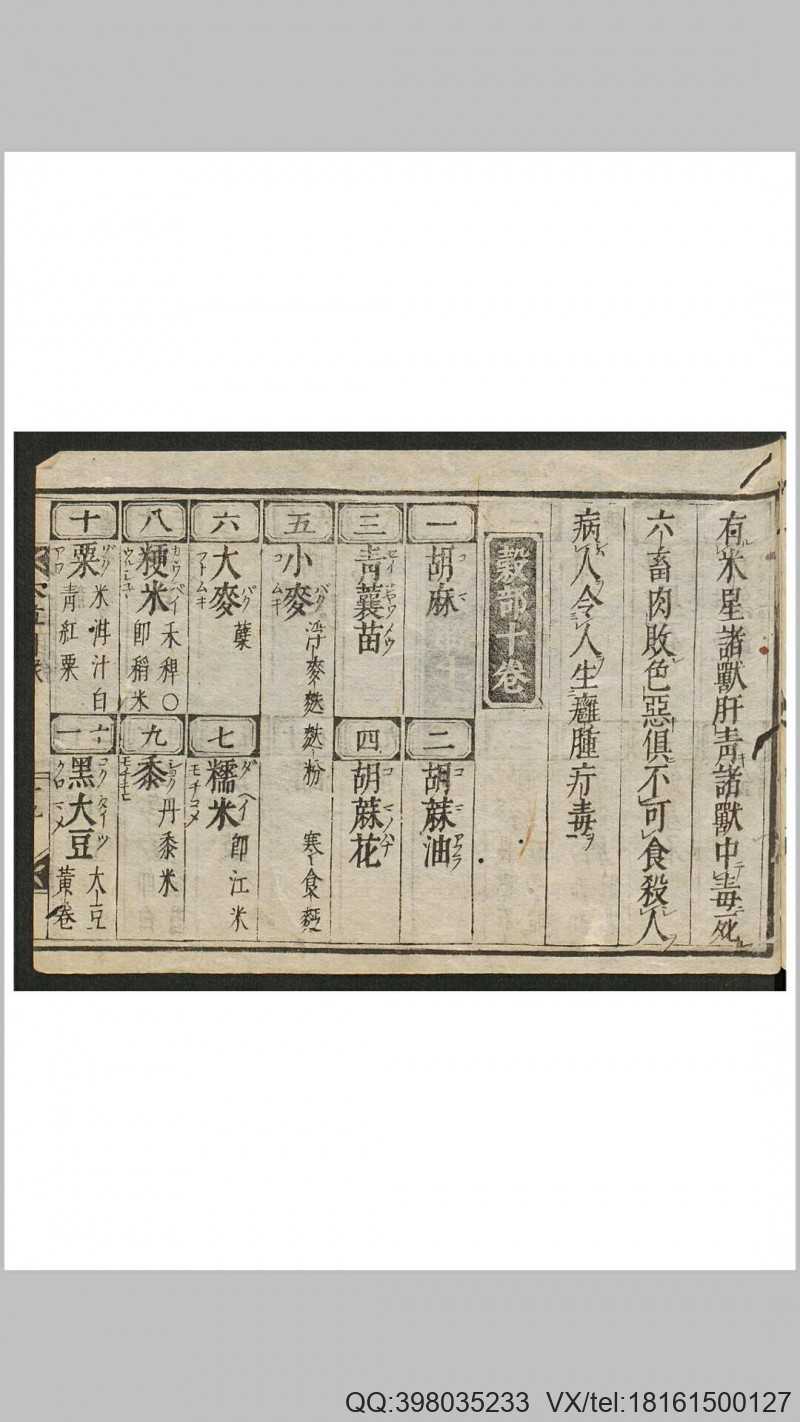 有米星諸獸肝青諸獸中毒死
六畜肉敗色惡俱不可食殺人
病人令人生癰腫疔毒
穀部十卷
一 胡麻
二 胡蔴油
三 青蘘苗
四 胡蔴花
五 小麥 浮麥 麩 麩粉 寒食麪
六 大麥 蘖
七 糯米 即江米
八 粳米 禾稗〇即稻米
九 黍 丹黍米
十 粟 米泔汁 白青紅粟
十一 黑大豆 大豆黃卷
QQ:398035233 VX/tel:18161500127